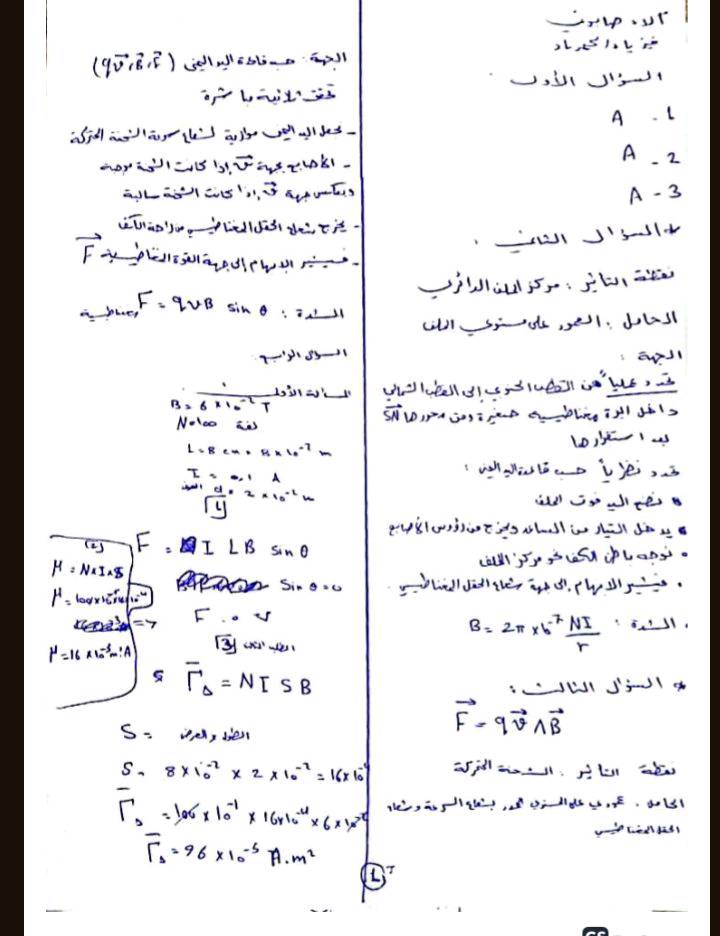 السؤال الأول
A - 1
A - 2
A - 3
* السؤال الثاني :
نقطة التأثير : مركز الملف الدائري
الحامل : العمود على مستوي الملف
الجهة :
تحدد عملياً من القطب الجنوبي إلى القطب الشمالي
داخل ابرة مغناطيسية صغيرة ومن محورها SN
بعد استقرارها
تحدد نظرياً حسب قاعدة اليد اليمنى :
نضع اليد فوق الملف
يدخل التيار من الساعد ويخرج من رؤوس الأصابع
نوجه باطن الكف نحو مركز الملف
فيشير الابهام إلى جهة شعاع الحقل المغناطيسي .
. الشدة : B = 2π × 10⁻⁷ NI/r
* السؤال الثالث :
F = q v ∧ B
نقطة التأثير . الشحنة المتحركة
الحامل . عمودي على المستوي المحدد بشعاع السرعة وشعاع
الحقل المغناطيسي
الجهة : حسب قاعدة اليد اليمنى (qv, B, F)
تحقق ثلاثية مباشرة
- نجعل اليد اليمنى موازية لشعاع سرعة الشحنة المتحركة
- الأصابع بجهة v إذا كانت الشحنة موجبة
وبعكس جهة v إذا كانت الشحنة سالبة
- يخرج شعاع الحقل المغناطيسي من راحة الكف
- فيشير الابهام إلى جهة القوة المغناطيسية F
الشدة : F = qvB sin θ مغناطيسية
السؤال الرابع :
المسألة الأولى :
B = 6 × 10⁻² T
N = 100 لفة
L = 8 cm = 8 × 10⁻² m
I = 0.1 A
d = 2 × 10⁻² m
1
F = I L B sin θ
sin θ = 0
F = 0
3
Γ_Δ = N I S B
S = الطول × العرض
S = 8 × 10⁻² × 2 × 10⁻² = 16 × 10⁻⁴
Γ_Δ = 100 × 10⁻¹ × 16 × 10⁻⁴ × 6 × 10⁻²
Γ_Δ = 96 × 10⁻⁵ A.m²
(2)
M = N × I × S
M = 100 × 10⁻¹ × 16 × 10⁻⁴
=>
M = 16 × 10⁻³ m².A
1